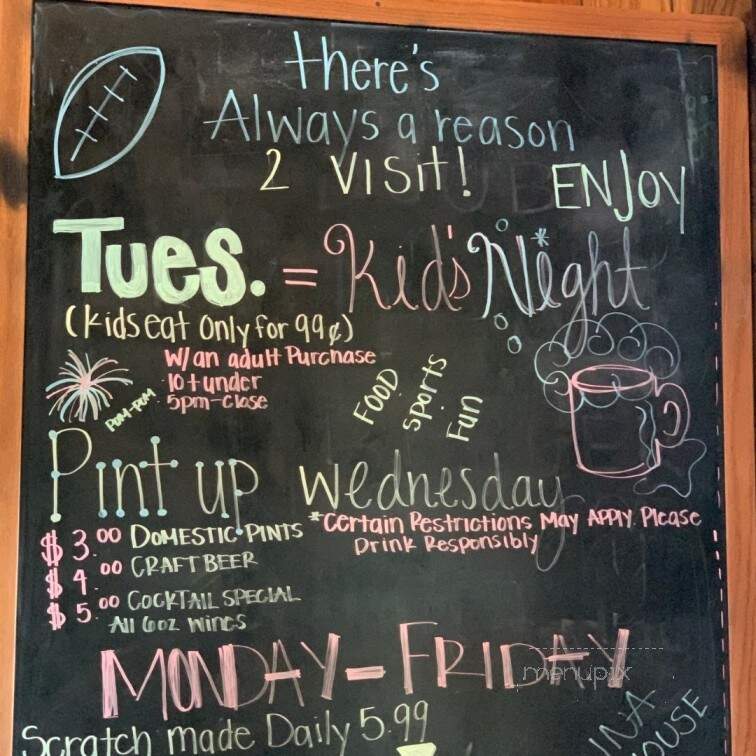 there's
Always a reason
2 VISIT!
ENJOY
TUES. = Kid's Night
(Kids eat Only for 99¢)
W/an adult Purchase
10 + under
5pm-Close
POM-POM
FOOD
Sports
Fun
Pint up wednesday
*Certain Restrictions May Apply. Please
Drink Responsibly
$3.00 DOMESTIC PINTS
$4.00 CRAFT BEER
$5.00 COCKTAIL SPECIAL
All 6oz WINES
MONDAY-FRIDAY
menupix
Scratch made Daily 5.99
IN A